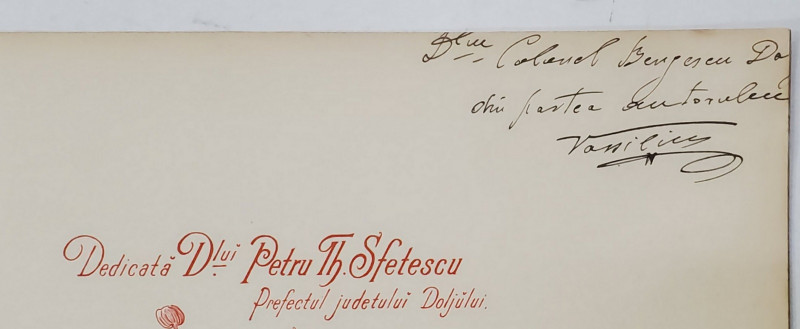 Dlui Colonel Bengescu Da
din partea autorului
Vassiliu
Dedicată Dlui Petru Th. Sfetescu
Prefectul judetului Doljului.